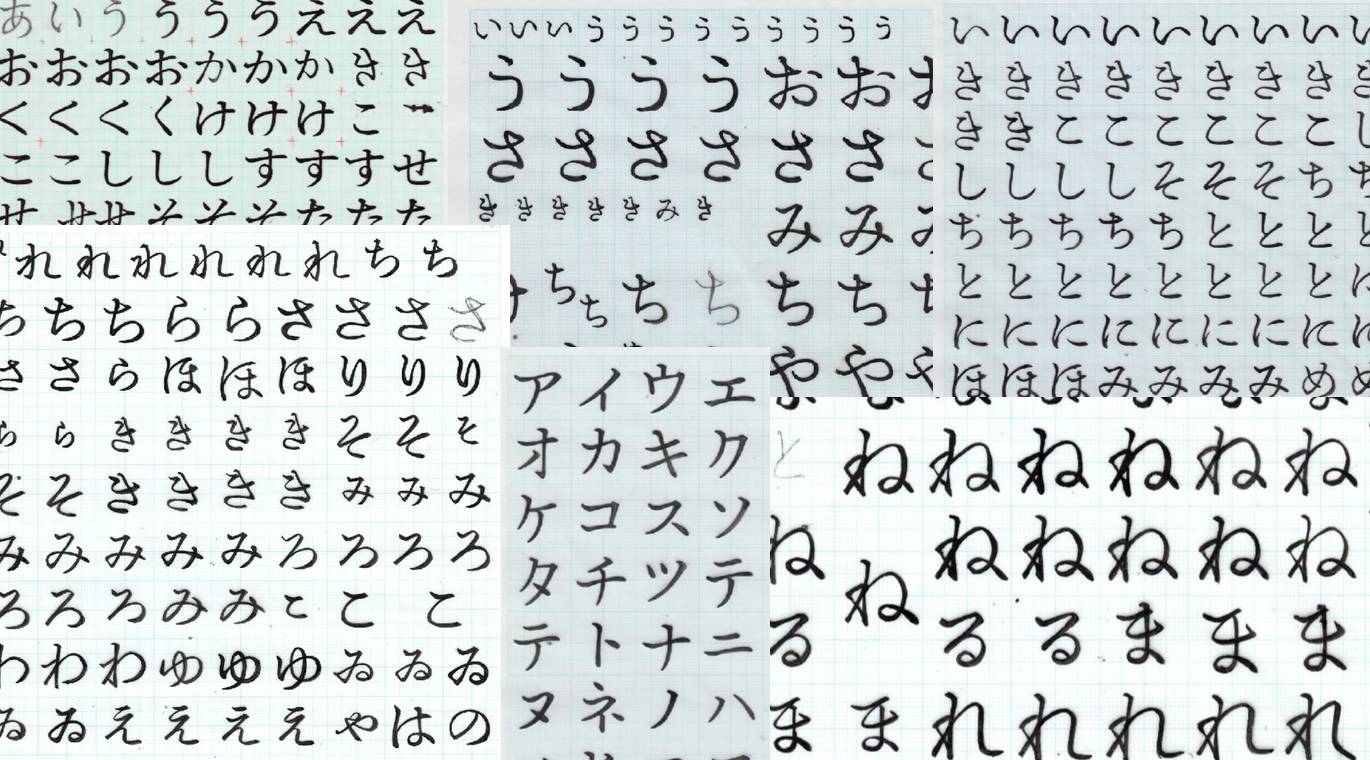 あいうううう えええ
おおおおかかかきき
くくくくけけけこ
ここしししすすすせ
せせせそそそたたた
いいいうううううううう
ううううおお
さささささささ
きききききみき
みみ
ちちちち
ちち
やや
いいいいいいいい
きききききききき
ききここここここ
ししししそそそち
ちちちちちととと
ととととととと
にににににににに
ほほほみみみみめ
れれれれれれちち
ちちちららささささ
ささらほほほりりり
らら ききききそそそ
そそききききみみみ
みみみみみろろろろ
ろろろみみここ こ
わわわゆゆゆゐゐゐ
ゐゐええええやはの
アイウエ
オカキク
ケコスソ
タチツテ
テトナニ
ヌネノハ
と ねねねねねね
ねねねねねね
ね
るるるままま
ままれれれれれ